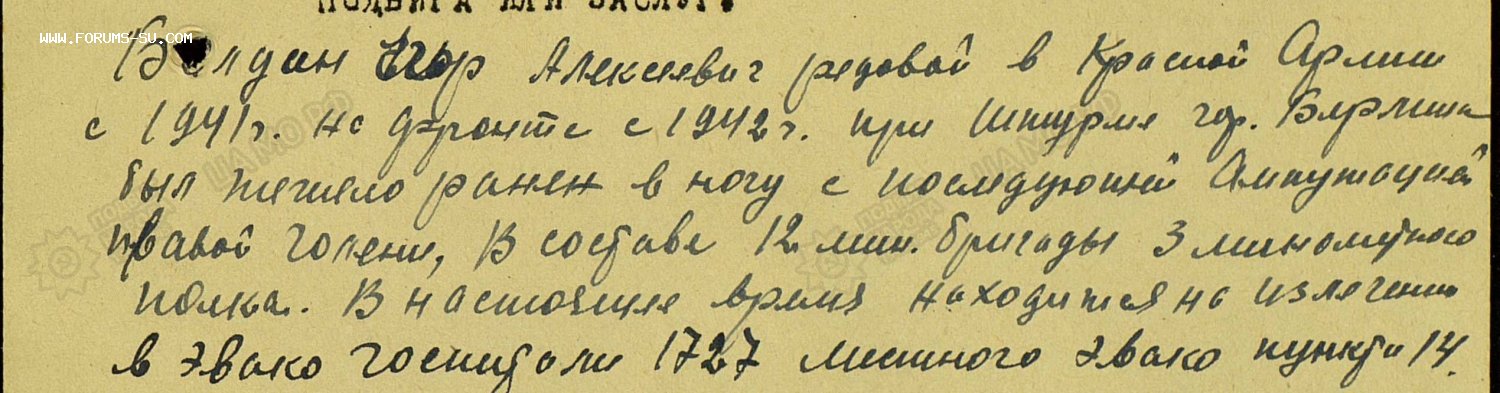 ПОДВИГА ИЛИ ЗАСЛУГ.
WWW.FORUMS-SU.COM
Алексеевич редовой в Красной Армии
с 1941г. на фронте с 1942г. при Штурме гор. Берлина
был тежело ранен в ногу с последующей Ампутацией
правой голени, В составе 12 мин. бригады 3 минометного
полка. В настоящее время находится на излечении
в Эвако госпитале 1727 местного Эвако пункта 14.